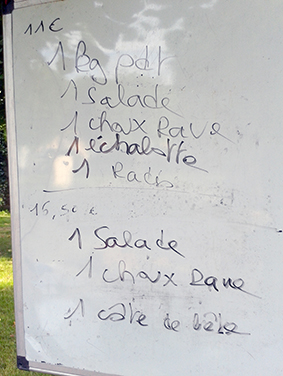 11€
1 Bg pdt
1 Salade
1 choux Rave
1 échalotte
1 Radis
1 Salade
1 choux Rave
1 côte de bète